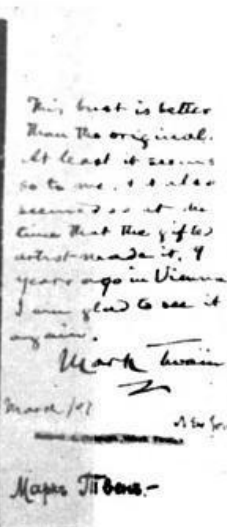 This bust is better
than the original.
At least it seems
so to me. & it also
seemed so at the
time that the gifted
artist made it, 9
years ago in Vienna
I am glad to see it
again.
Mark Twain
March /07
Маркъ Твенъ.-